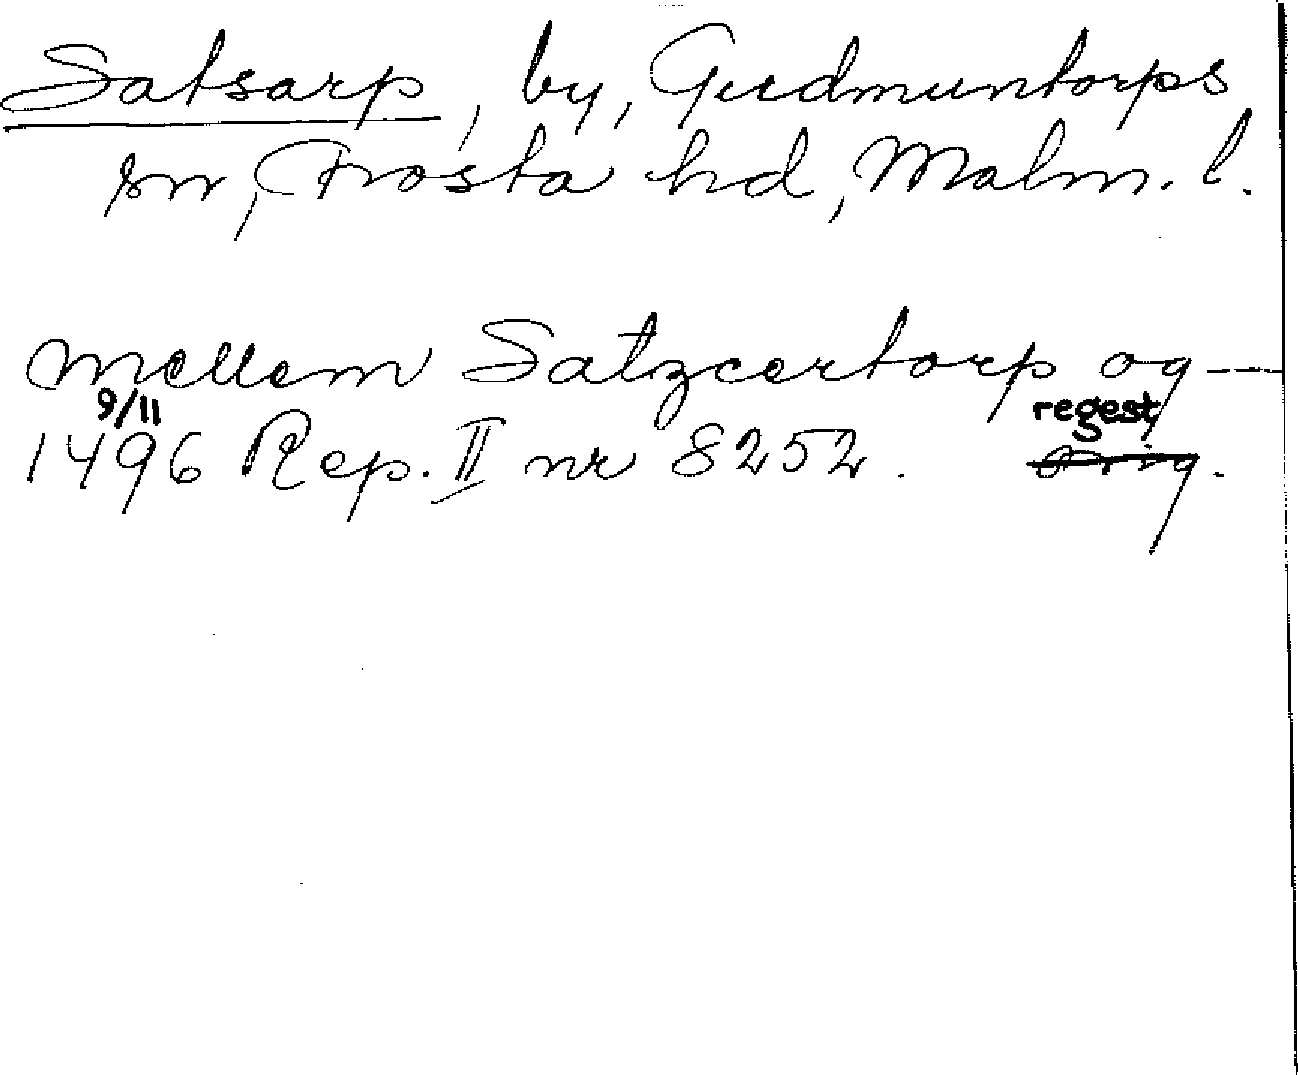 Satsarp, by, Gudmuntorps
sn, Frosta hd, Malm. l.
mellem Satzcertorp og ---
9/11 regest
1496 Rep. II nr 8252. Orig.